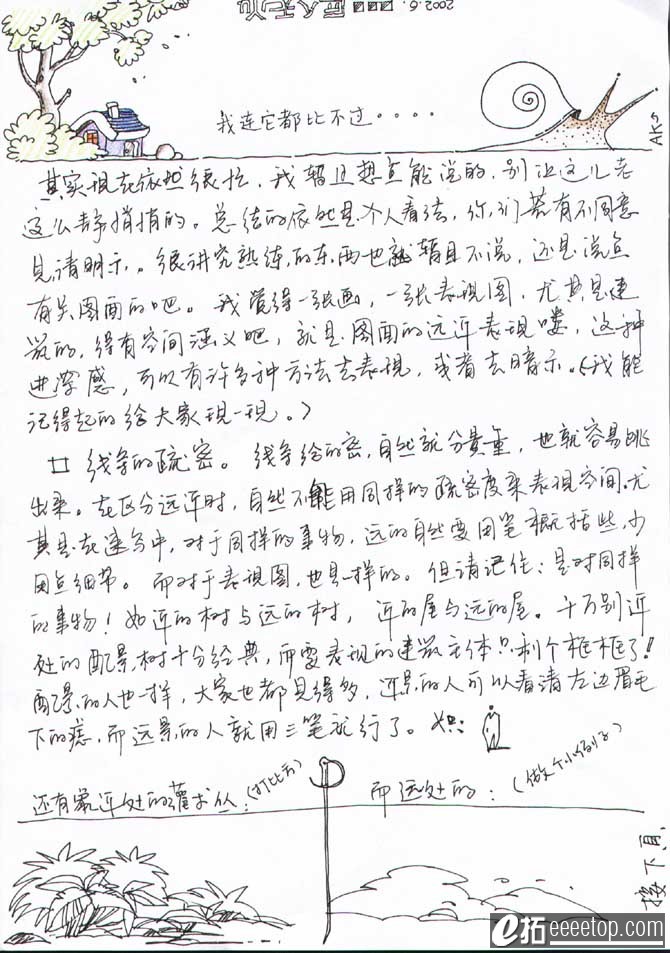 2002.6.
我连它都比不过....
AKS
其实现在依然很忙，我暂且想点能说的，别让这儿老
这么静悄悄的。总结的依然是个人看法，你们若有不同意
见，请明示。很讲究熟练的东西也就暂且不说，还是说点
有关图面的吧。我觉得一张画，一张表现图，尤其是建
筑的，得有空间涵义吧，就是图面的远近表现喽，这种
进深感，可以有许多种方法去表现，或者去暗示。(我能
记得起的给大家现一现。)
线条的疏密。线条给的密，自然就分量重，也就容易跳
出来。在区分远近时，自然不能用同样的疏密度来表现空间。尤
其是在速写中，对于同样的事物，远的自然要用笔概括些，少
用点细节。而对于表现图，也是一样的。但请记住：是对同样
的事物！如近的树与远的树，近的屋与远的屋。千万别近
处的配景，树十分经典，而要表现的建筑主体只剩个框框了！
配景的人也一样，大家也都见得多，近景的人可以看清左边眉毛
下的痣，而远景的人就用三笔就行了。如：
还有最近处的灌木丛：(打比方)
而远处的：(做个小例子)
接下页
e拓 eeeetop.com